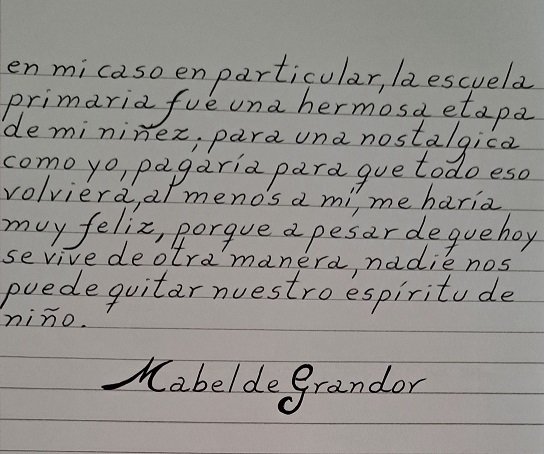 en mi caso en particular, la escuela
primaria fue una hermosa etapa
de mi niñez; para una nostalgica
como yo, pagaría para que todo eso
volviera, al menos a mí, me haría
muy feliz, porque a pesar de que hoy
se vive de otra manera, nadie nos
puede quitar nuestro espíritu de
niño.
Mabel de Grandor